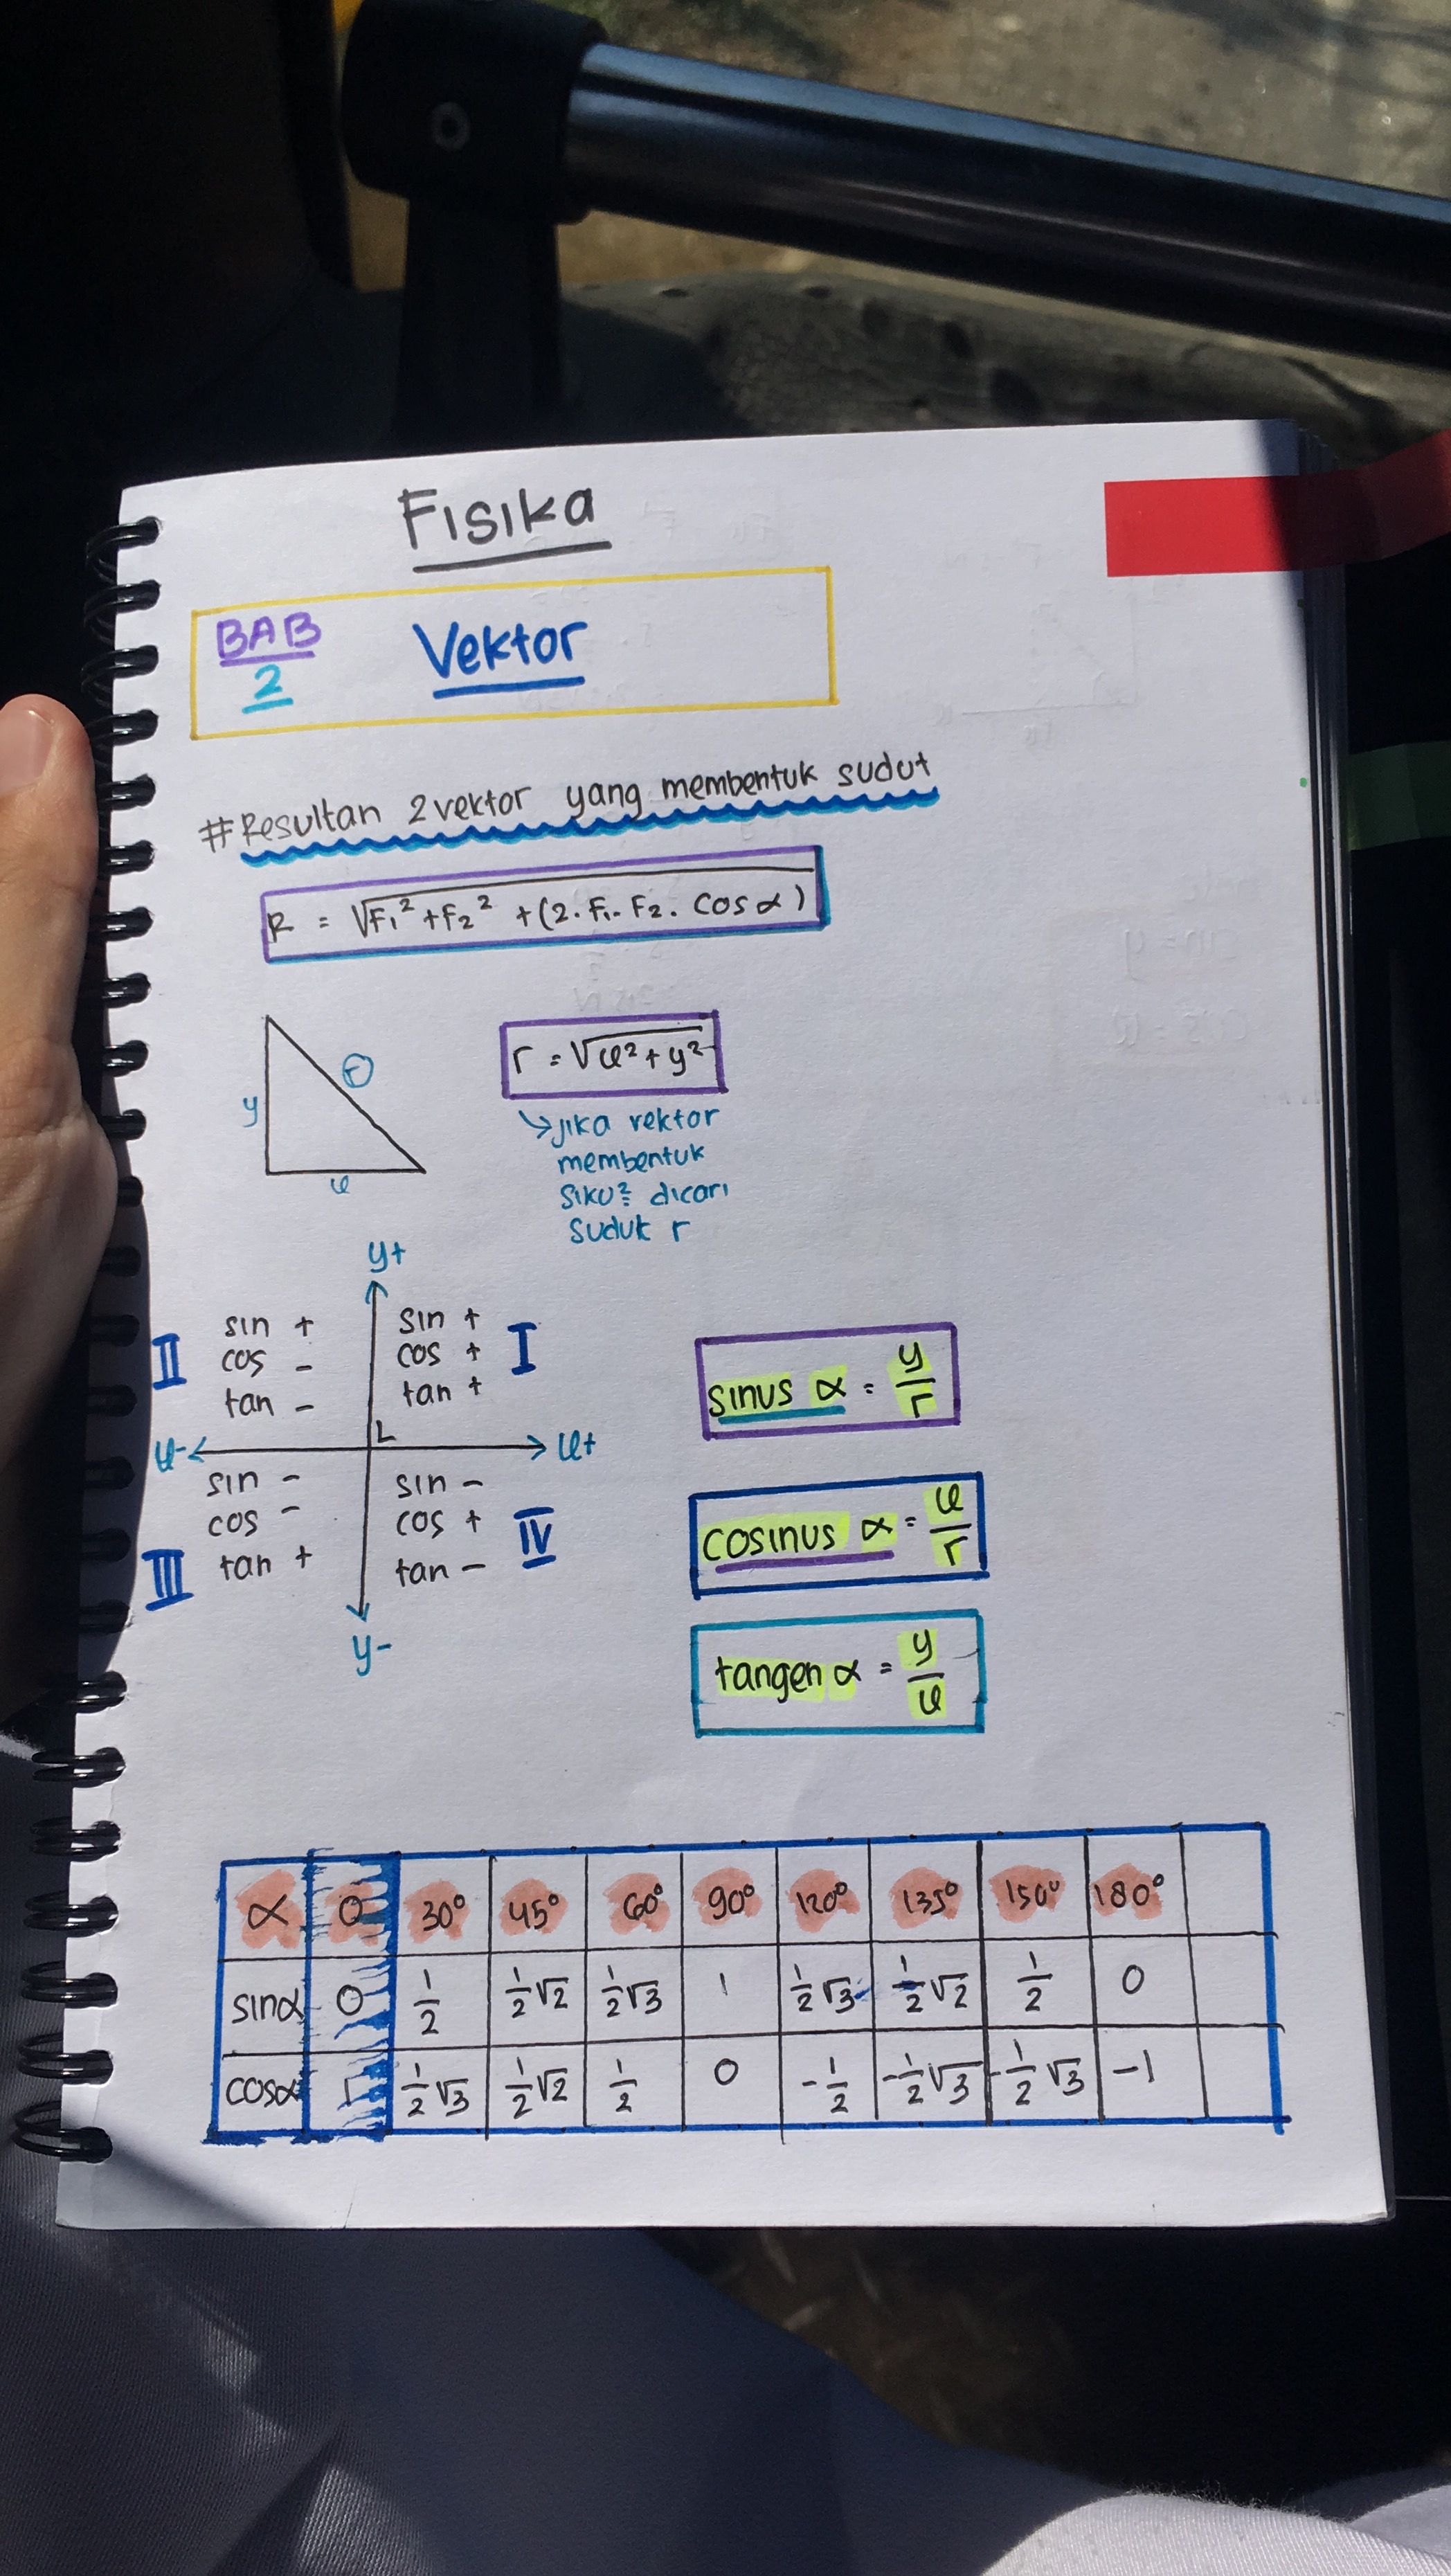 Fisika
BAB
2
Vektor
#Resultan 2 vektor yang membentuk sudut
R = √F₁² + F₂² + (2. F₁. F₂. Cos α)
y
r
x
r = √x² + y²
↳ jika vektor
membentuk
siku² dicari
suduk r
y+
II
sin +
cos -
tan -
sin +
cos +
tan +
I
x-
x+
sin -
cos -
tan +
III
sin -
cos +
tan -
IV
y-
sinus α = y/r
cosinus α = x/r
tangen α = y/x
α 0 30° 45° 60° 90° 120° 135° 150° 180°
sinα 0 1/2 1/2√2 1/2√3 1 1/2√3 1/2√2 1/2 0
cosα 1 1/2√3 1/2√2 1/2 0 -1/2 -1/2√3 -1/2√3 -1